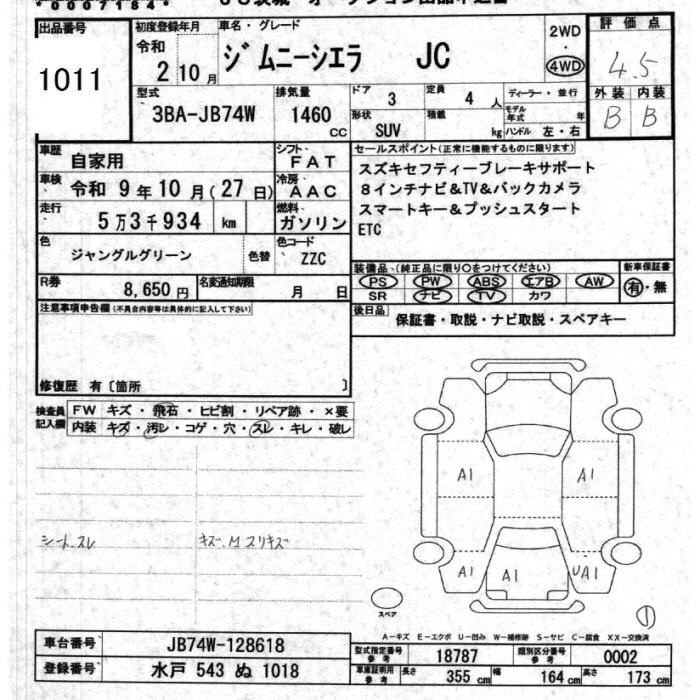 *0007184*
出品番号
1011
初度登録年月
令和
2年10月
車名・グレード
ジムニーシエラ JC
2WD
4WD
評価点
4.5
外装 内装
B B
型式
3BA-JB74W
排気量
1460
CC
ドア
3
定員
4人
形状
SUV
積載
kg
ディーラー・並行
モデル年式 年
ハンドル 左・右
車歴
自家用
シフト
FAT
車検
令和 9年10月(27日)
冷房
AAC
走行
5万3千934 km
燃料
ガソリン
色
ジャングルグリーン
色替
色コード
ZZC
R券
8,650円
名変通知期限
月 日
セールスポイント(正常に機能するものに限ります)
スズキセフティーブレーキサポート
8インチナビ&TV&バックカメラ
スマートキー&プッシュスタート
ETC
装備品(純正品に限り○をつけてください)
PS PW ABS エアB AW
SR ナビ TV カワ
新車保証書
有・無
後日品
保証書・取説・ナビ取説・スペアキー
注意事項申告欄(不具合内容等は具体的に記入して下さい)
修復歴 有〔箇所 〕
検査員
記入欄
FW キズ・飛石・ヒビ割・リペア跡・×要
内装 キズ・汚レ・コゲ・穴・スレ・キレ・破レ
シートスレ
キズ.Mスリキズ
A1
A1
A1
A1
UA1
スペア
1
A―キズ E―エクボ U―凹み W―補修跡 S―サビ C―腐食 XX―交換済
車台番号
JB74W-128618
登録番号
水戸 543 ぬ 1018
型式指定番号
参考
18787
類別区分番号
参考
0002
車庫証明用
参考
長さ
355 cm
幅
164 cm
高さ
173 cm